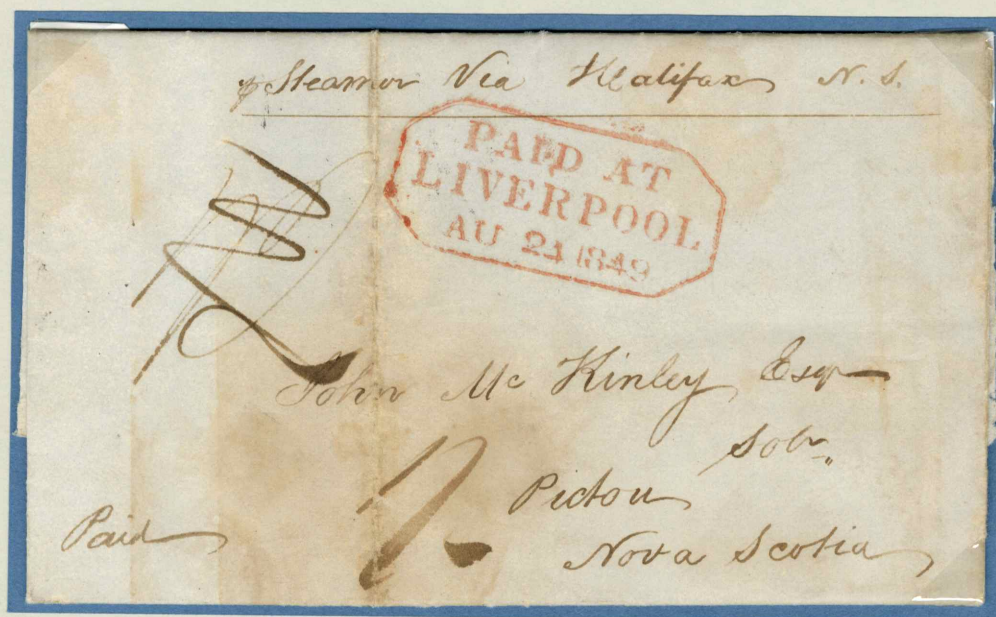 ⅌ Steamer Via Halifax N. S.
PAID AT
LIVERPOOL
AU 24 1849
John Mc Kinley Esqr
Solr
Pictou
Paid
Nova Scotia